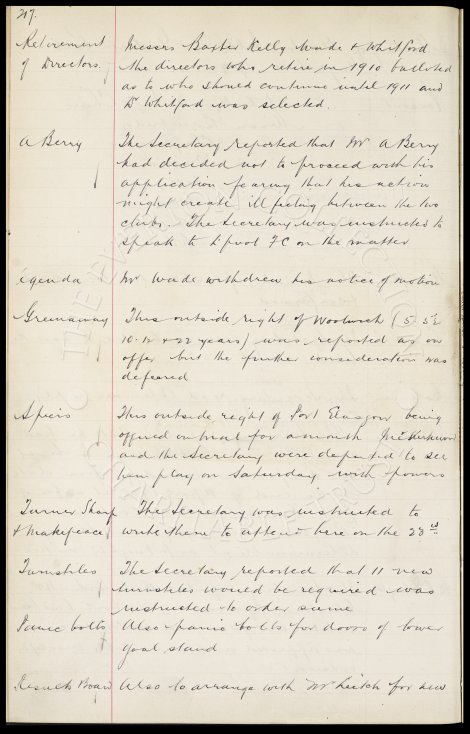 217.
Retirement of Directors.
Messrs Baxter Kelly Wade & Whitford
the directors who retire in 1910 balloted
as to who should continue until 1911 and
Dr Whitford was selected.
A Berry
The Secretary reported that Mr A Berry
had decided not to proceed with his
application fearing that his action
might create ill feeling between the two
clubs. The Secretary was instructed to
speak to L'pool FC on the matter
Agenda
Mr Wade withdrew his notice of motion
Greenaway
This outside right of Woolwich (5.5½
10.12 & 22 years) was reported as on
offer but the further consideration was
defered
Speirs
This outside right of Port Glasgow being
offered on trial for a month
and the Secretary were deputed to see
him play on Saturday with powers
Turner Sharp
& Makepeace
The Secretary was instructed to
write them to attend here on the 23rd
Turnstiles
The Secretary reported that 11 new
turnstiles would be required was
instructed to order same
Panic bolts
Also panic bolts for doors of lower
goal stand
Results Board
Also to arrange with Mr Leitch for new